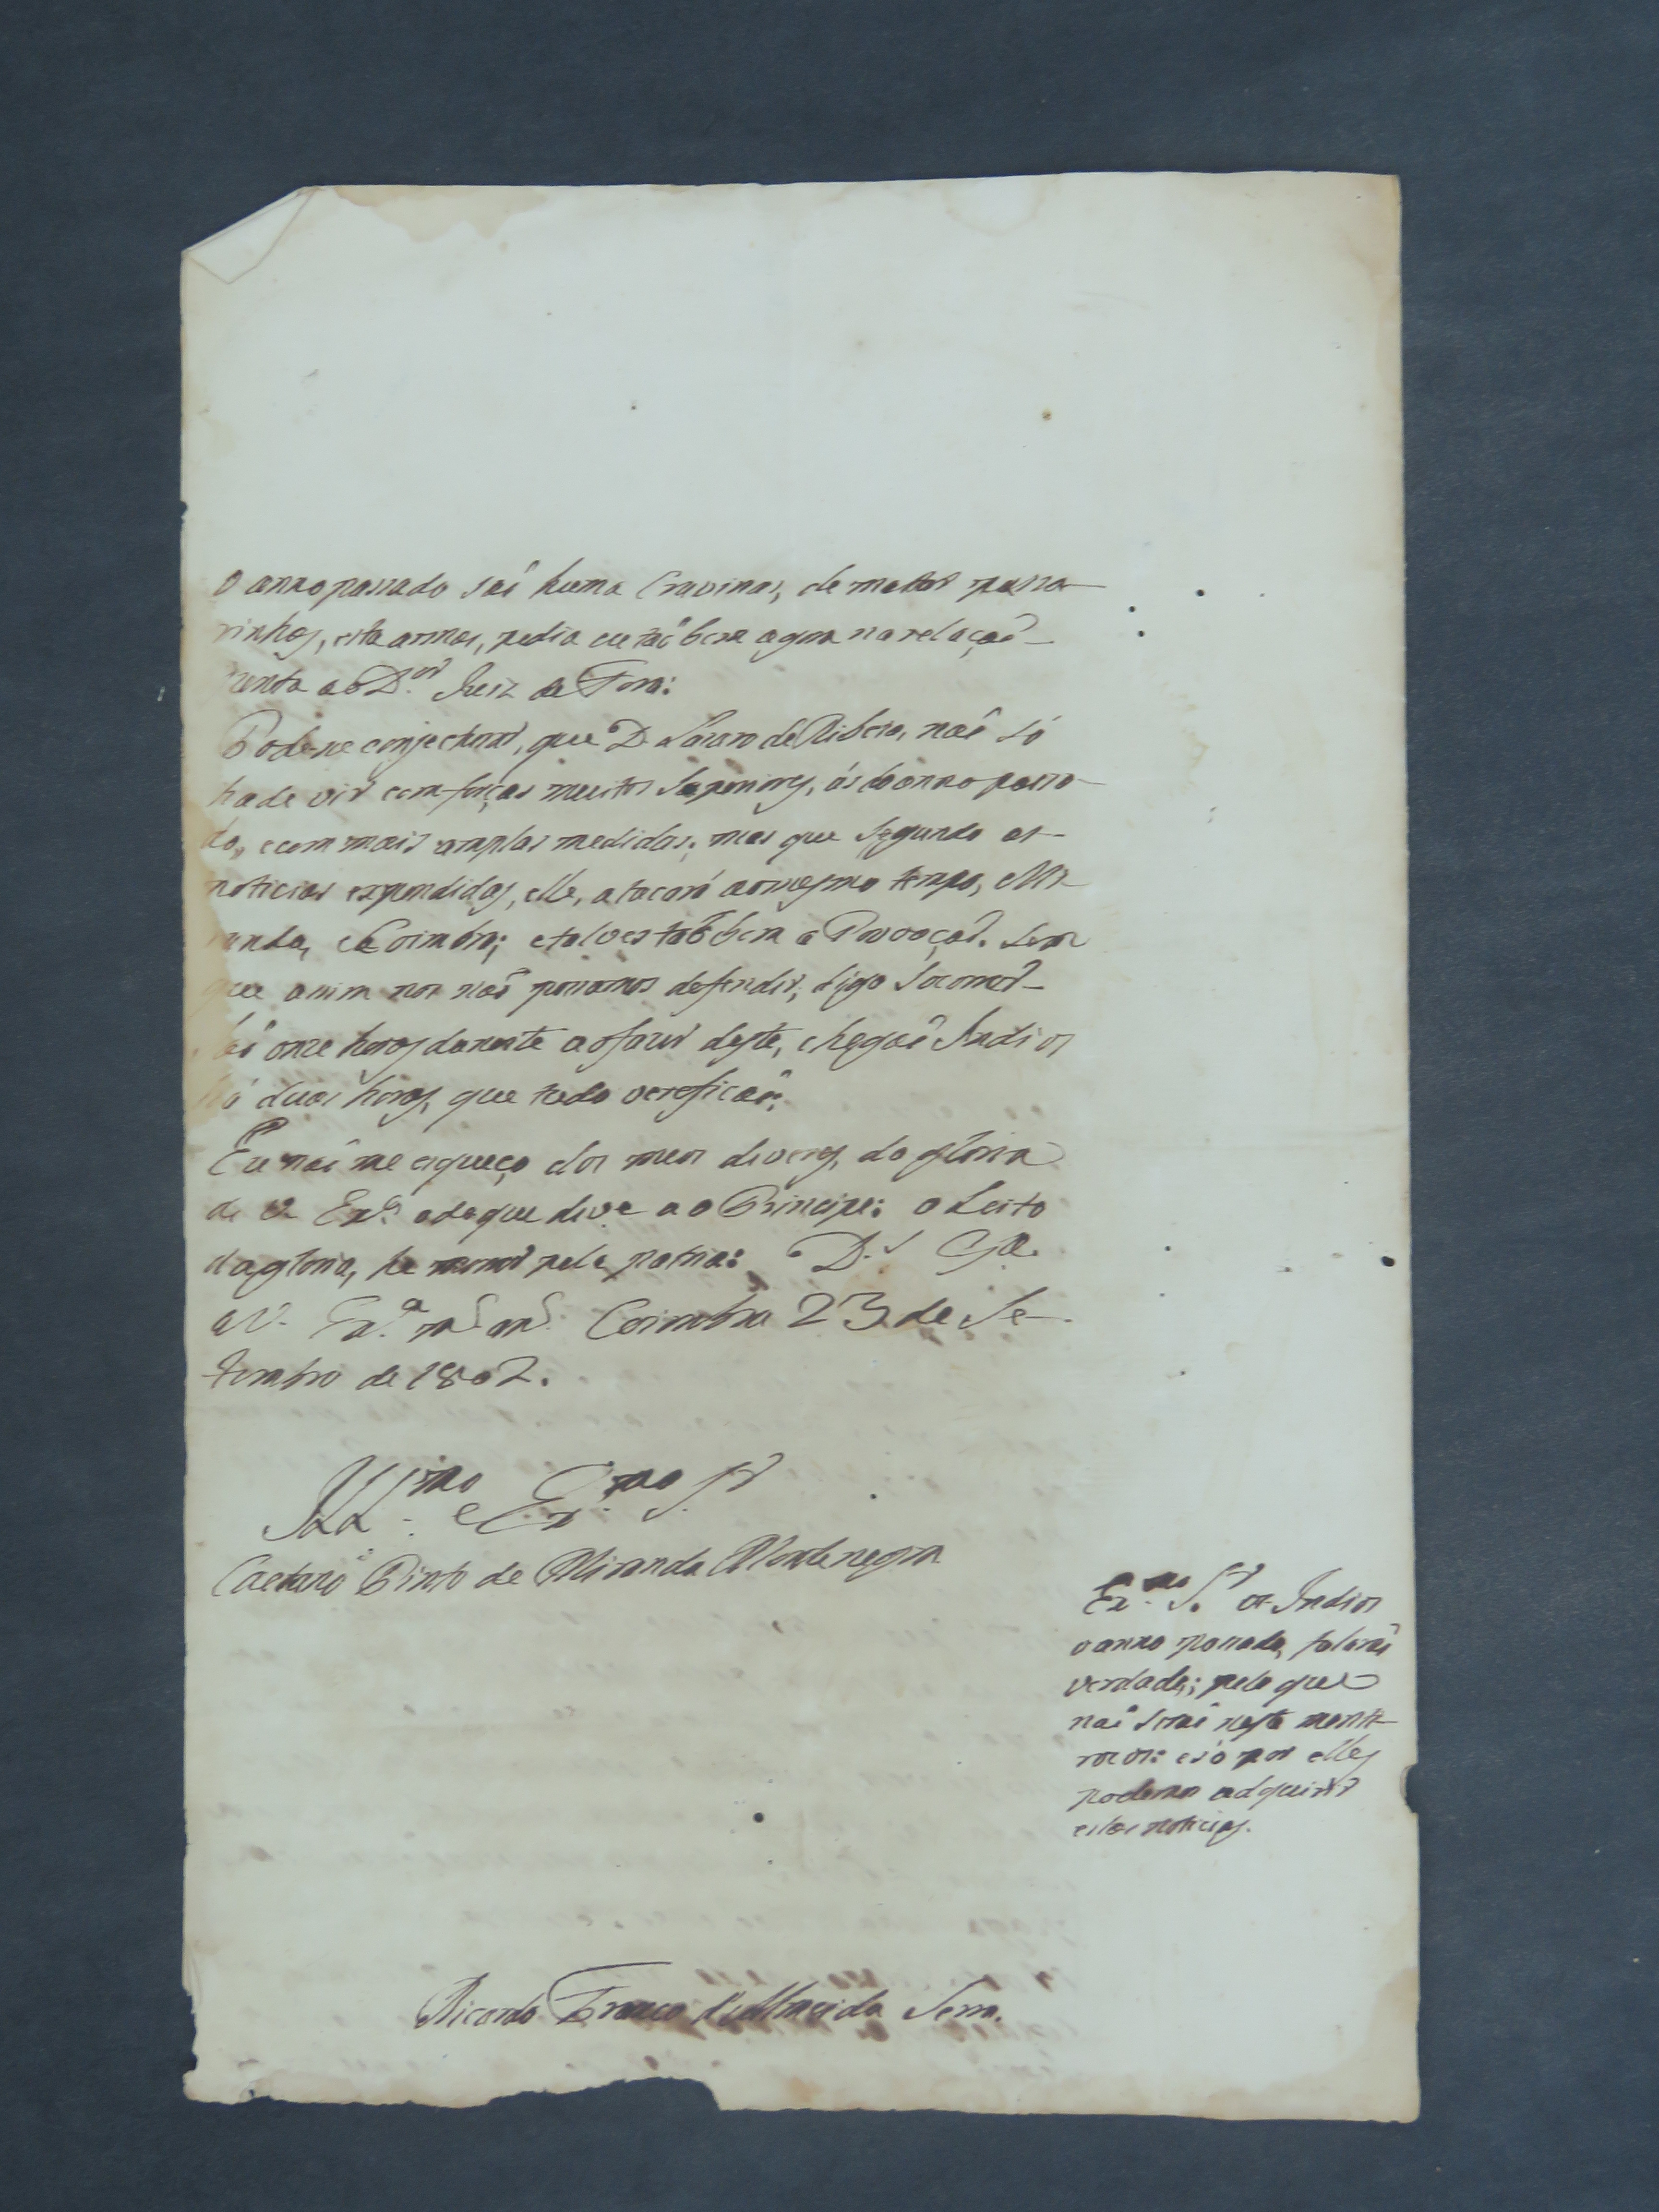 O anno passado saõ huma Cravinas, de matar passa-
rinhos, esta armas, pedia eu taõ bem agora na relaçaõ
ao D.or Juiz de Fora:
Pode-se conjecturar, que D. Lazaro de Ribera, naõ só
hade vir com forças muitos Superiores, ás do anno passa-
do, e com mais amplas medidas; mas que segundo as
noticias expendidas, elle, atacará ao mesmo tempo, Mi-
randa, e Coimbra; e talves taõ bem a Povoaçaõ. Sem
que assim nos naõ possamos defender, digo Socorrer.
Saõ onze horas da noite ao fazer desta, chegaõ Indios
há duas horas, que tudo vereficaõ:
Eu naõ me esqueço dos meus deveres, da gloria
de V. Ex.ª e da que deve ao Principe: o Leito
da gloria, he morrer pela patria: D.s G.e
a V. Ex.ª m.s an.s Coimbra 23 de Se-
tembro de 1802.
Ill.mo e Ex.mo S.r
Caetano Pinto de Miranda Montenegro
Ex.mo S.r os Indios
o anno passado, falaraõ
verdade; pelo que
naõ seraõ nesta menti-
rosos: e só por elles
podemos adquirir
estas noticias.
Ricardo Franco d'Almeida Serra.